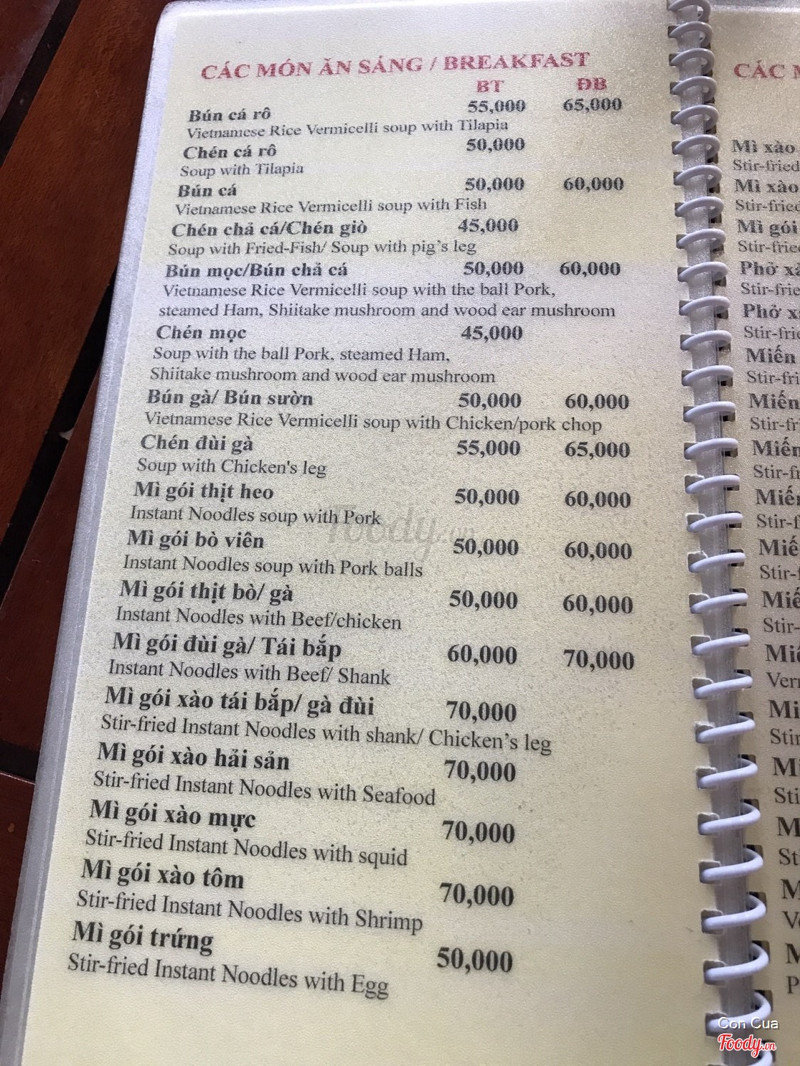 CÁC MÓN ĂN SÁNG / BREAKFAST
BT ĐB
Bún cá rô 55,000 65,000
Vietnamese Rice Vermicelli soup with Tilapia
Chén cá rô 50,000
Soup with Tilapia
Bún cá 50,000 60,000
Vietnamese Rice Vermicelli soup with Fish
Chén chả cá/Chén giò 45,000
Soup with Fried-Fish/ Soup with pig's leg
Bún mọc/Bún chả cá 50,000 60,000
Vietnamese Rice Vermicelli soup with the ball Pork,
steamed Ham, Shiitake mushroom and wood ear mushroom
Chén mọc 45,000
Soup with the ball Pork, steamed Ham,
Shiitake mushroom and wood ear mushroom
Bún gà/ Bún sườn 50,000 60,000
Vietnamese Rice Vermicelli soup with Chicken/pork chop
Chén đùi gà 55,000 65,000
Soup with Chicken's leg
Mì gói thịt heo 50,000 60,000
Instant Noodles soup with Pork
Mì gói bò viên 50,000 60,000
Instant Noodles soup with Pork balls
Mì gói thịt bò/ gà 50,000 60,000
Instant Noodles with Beef/chicken
Mì gói đùi gà/ Tái bắp 60,000 70,000
Instant Noodles with Beef/ Shank
Mì gói xào tái bắp/ gà đùi 70,000
Stir-fried Instant Noodles with shank/ Chicken's leg
Mì gói xào hải sản 70,000
Stir-fried Instant Noodles with Seafood
Mì gói xào mực 70,000
Stir-fried Instant Noodles with squid
Mì gói xào tôm 70,000
Stir-fried Instant Noodles with Shrimp
Mì gói trứng 50,000
Stir-fried Instant Noodles with Egg
CÁC
Mì xào
Stir-fried
Mì xào
Stir-fried
Mì gói
Phở
Phở
Miến
Miến
Foody.vn
Con Cua
Foody.vn